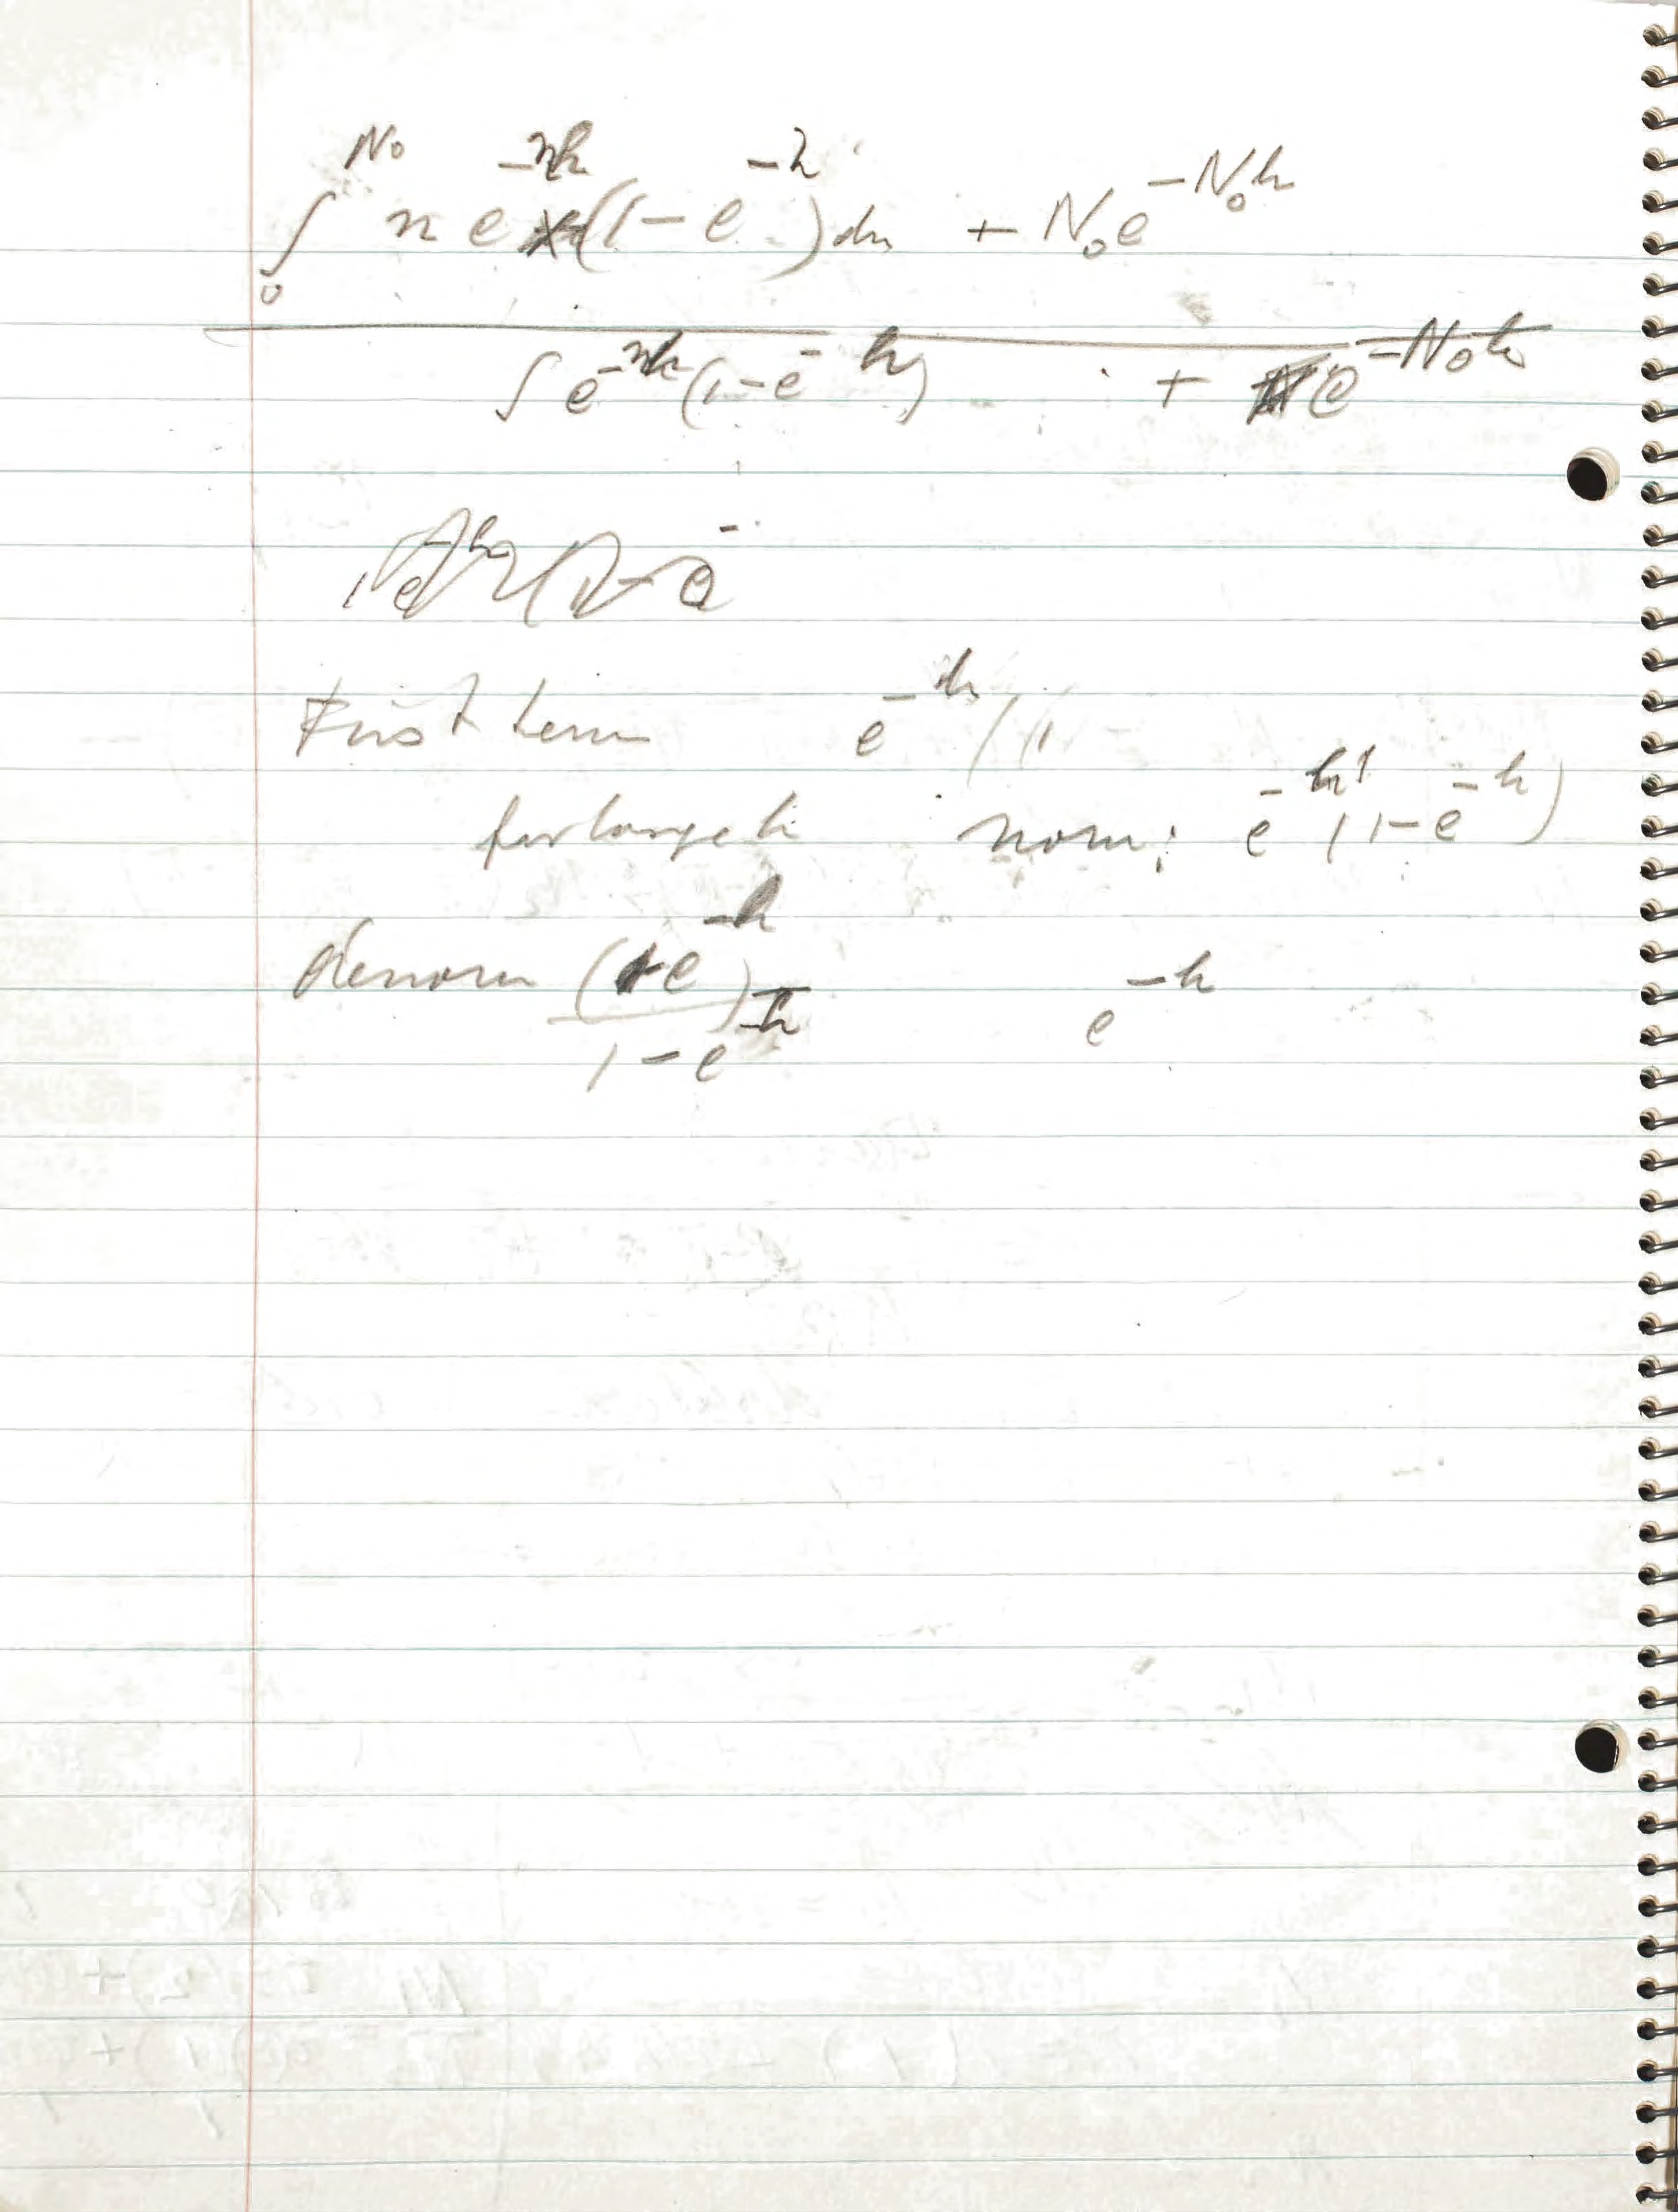 ∫₀^{N₀} n e^{-nh} (1 - e^{-h}) dn + N₀ e^{-N₀h}
∫ e^{-nh} (1 - e^{-h}) + e^{-N₀h}
First term e^{-h} (1
for large h nom: e^{-h} (1 - e^{-h})
denom (e^{-h})
1 - e^{-h} e^{-h}